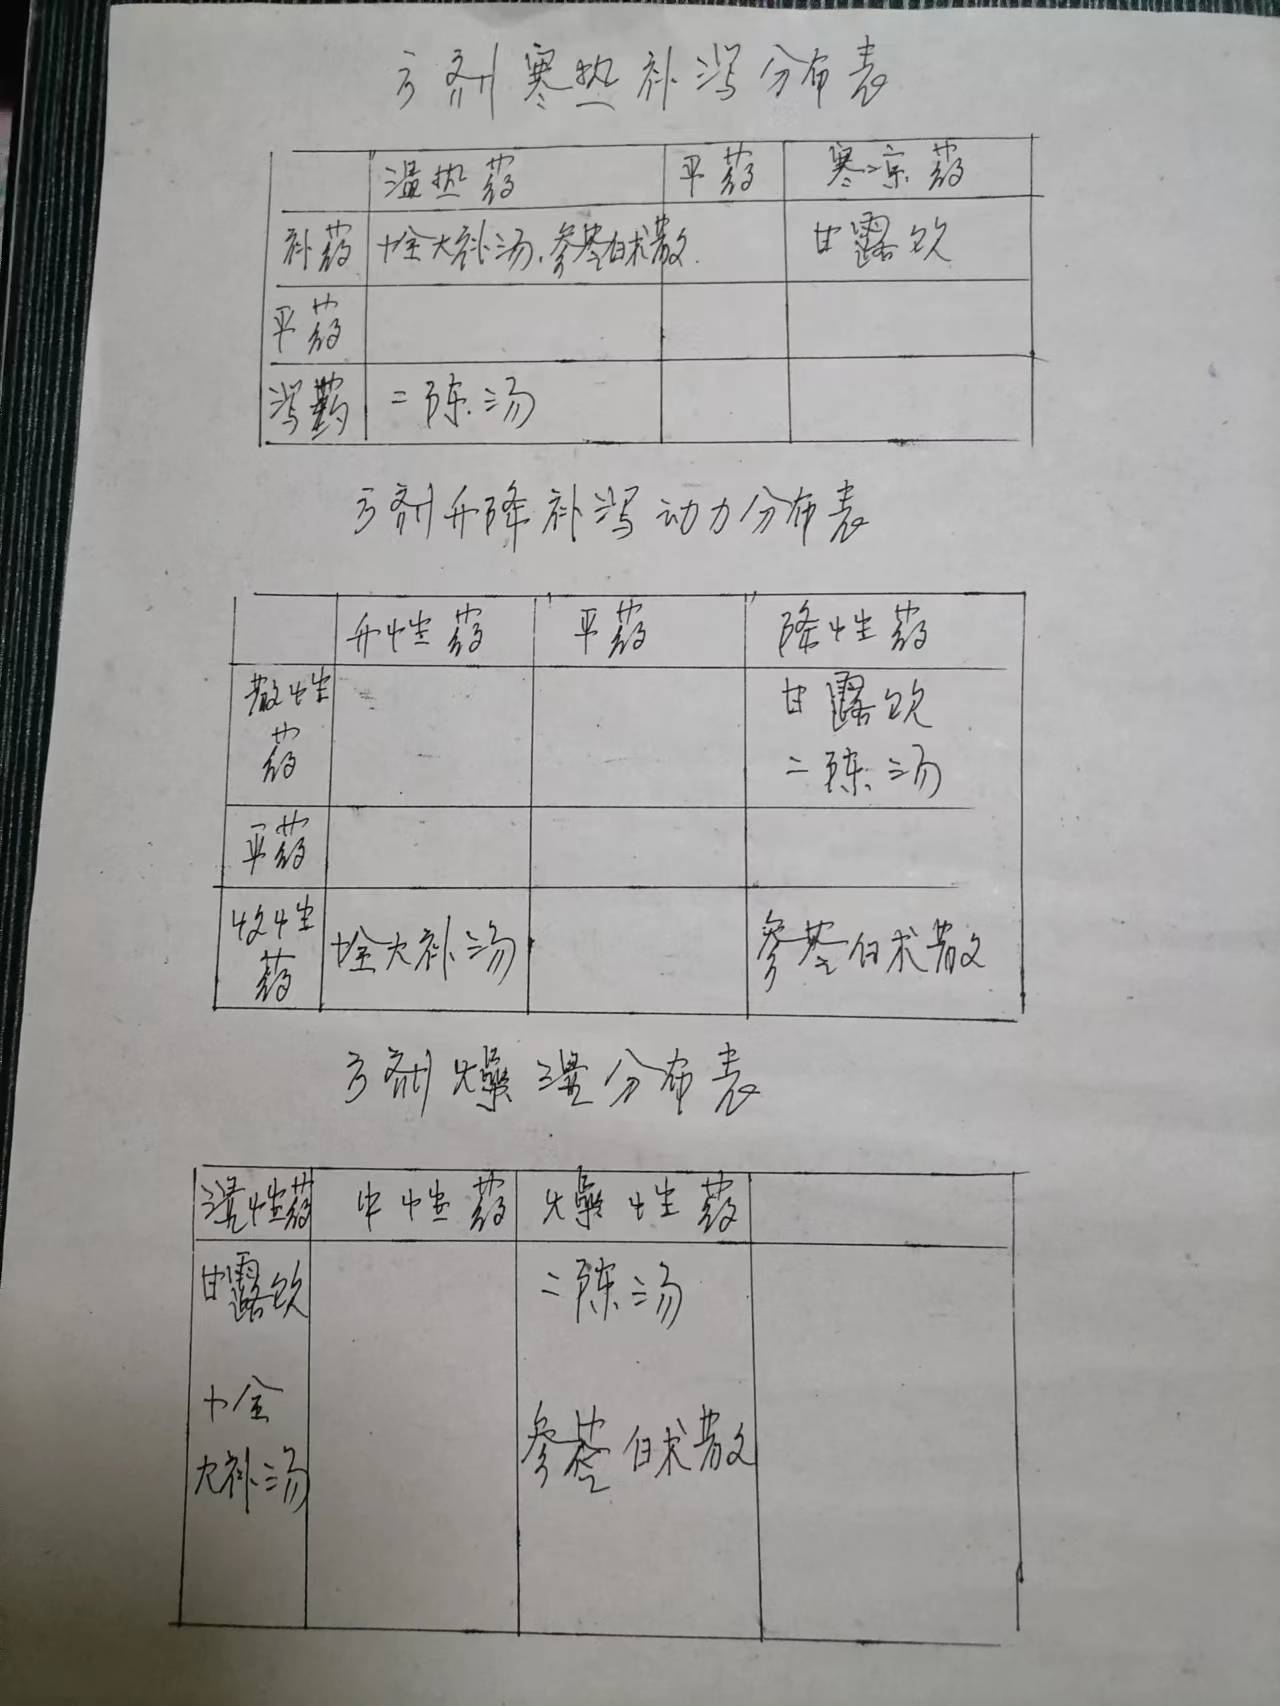 方剂寒热补泻分布表
温热药 平药 寒凉药
补药 十全大补汤、参苓白术散 甘露饮
平药
泻药 二陈汤
方剂升降补泻动力分布表
升性药 平药 降性药
散性药 甘露饮
二陈汤
平药
收性药 十全大补汤 参苓白术散
方剂燥湿分布表
湿性药 中性药 燥性药
甘露饮 二陈汤
十全
大补汤 参苓白术散